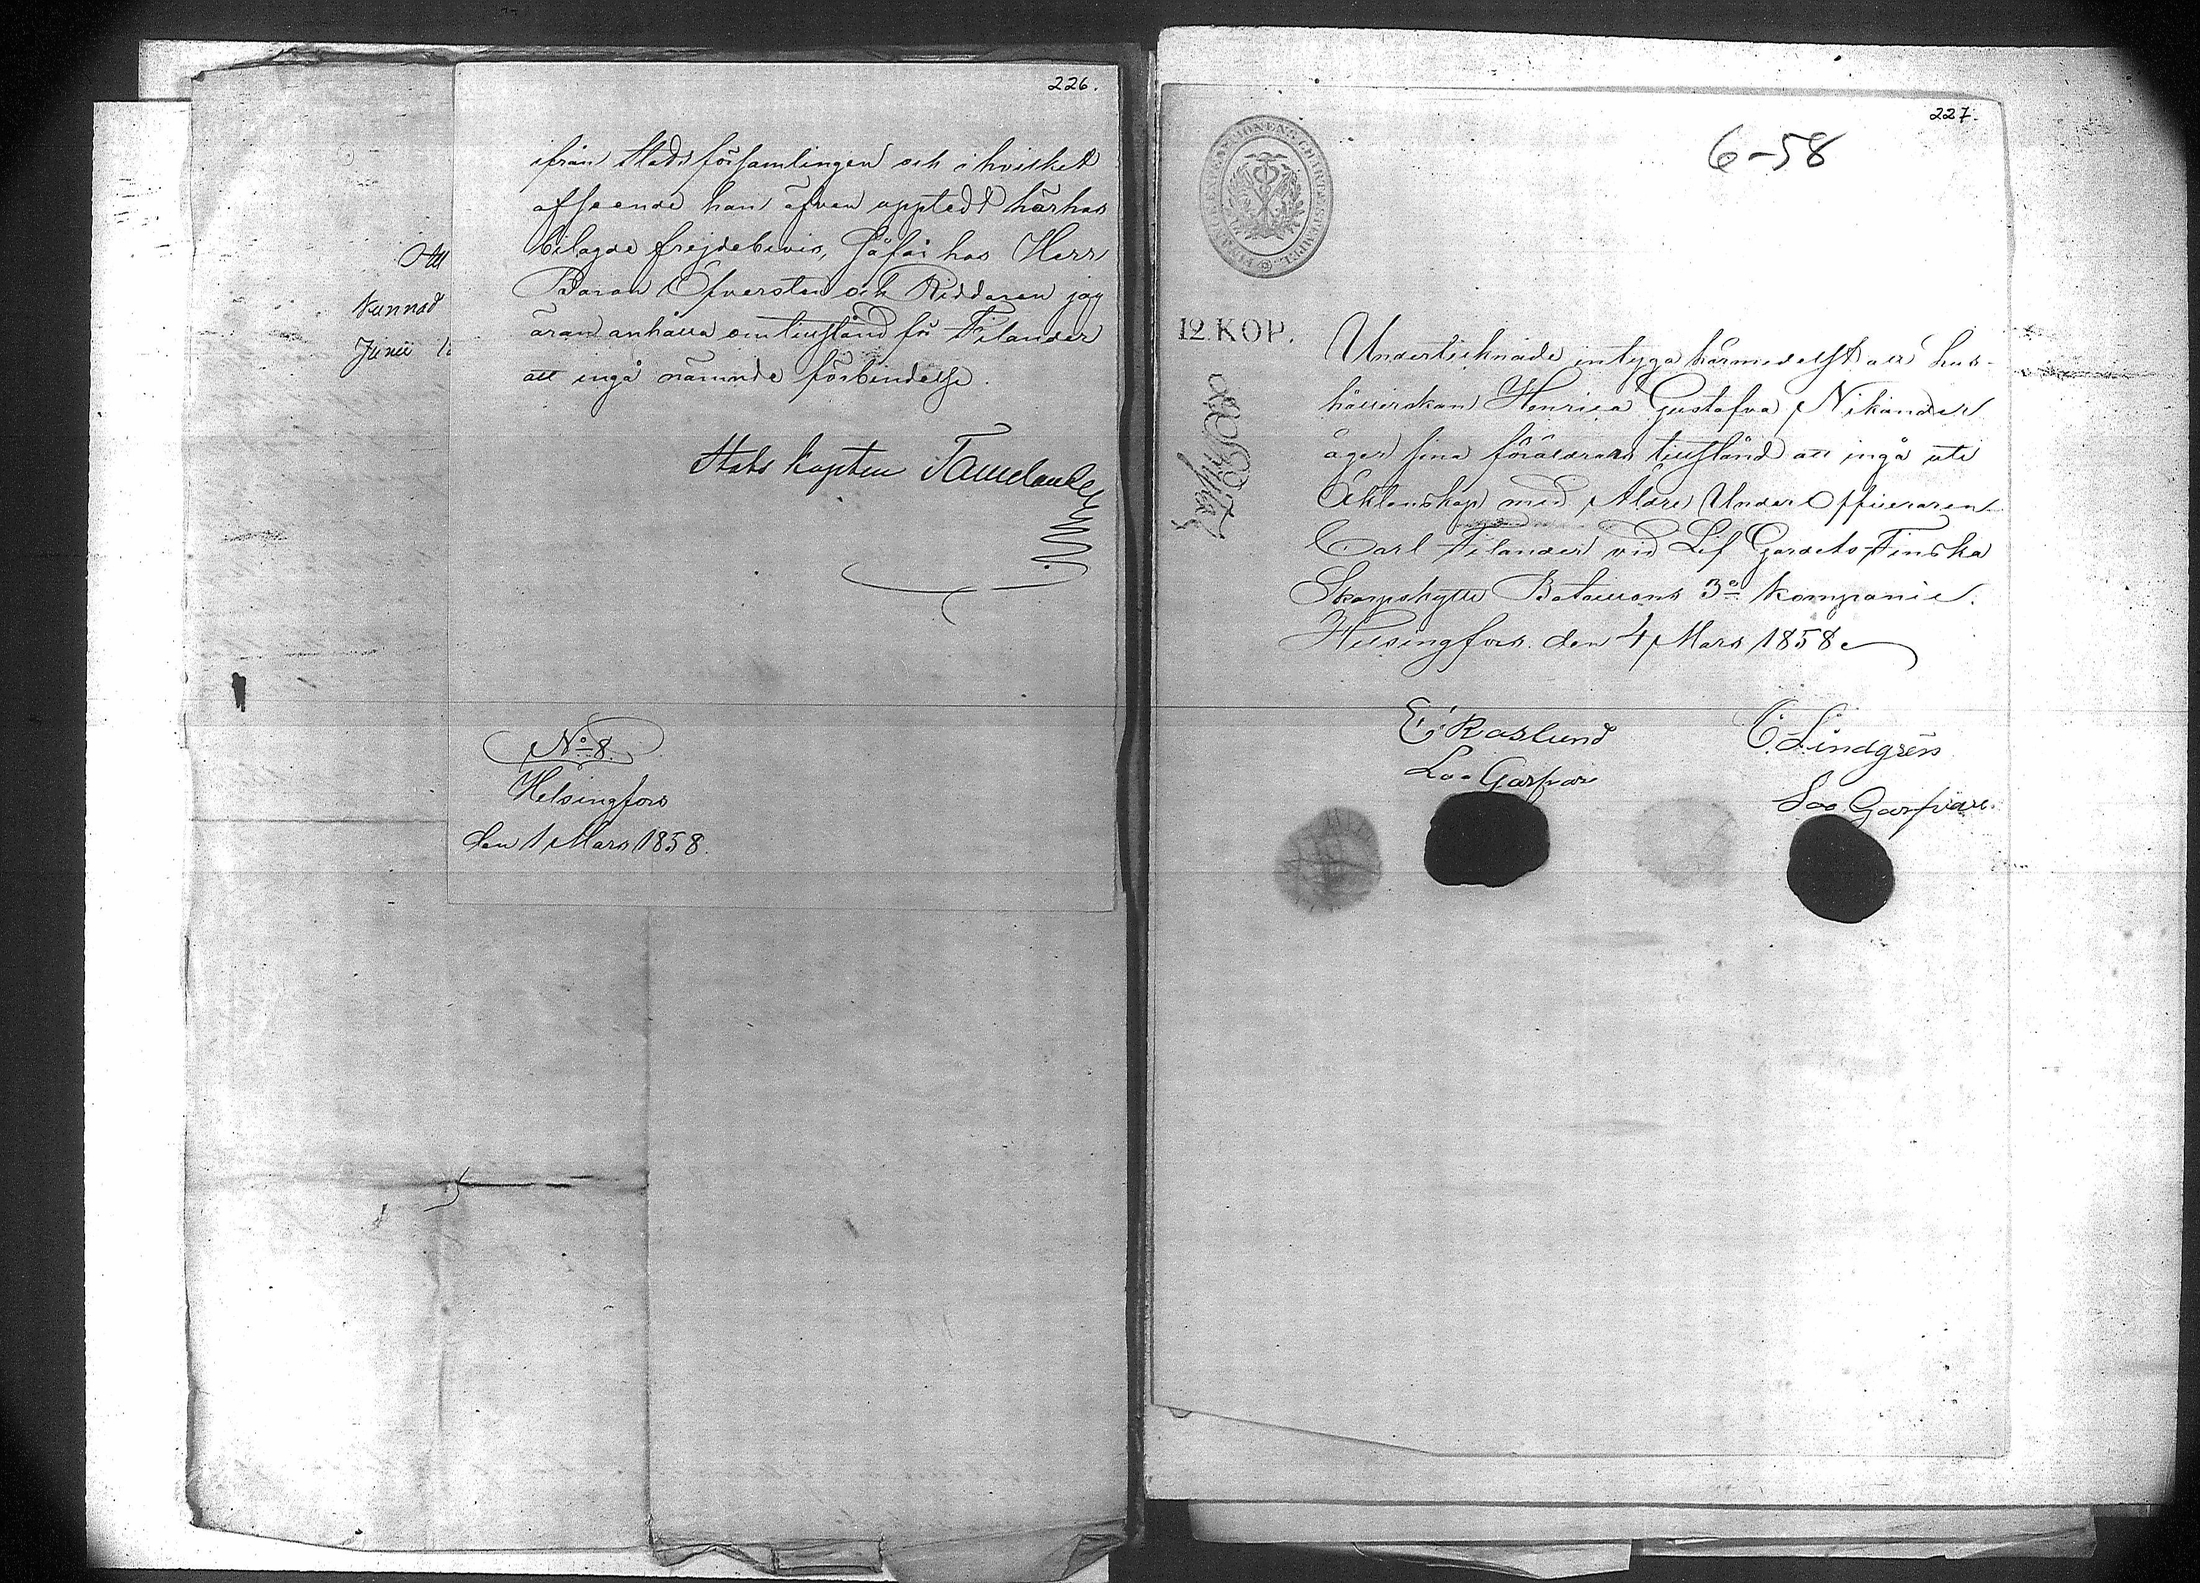 226.
ifrån Stadsförsamlingen och i hvilket
afseende han äfven upptedt härhos
bilagde frejdebevis, så får hos Herr
Baron Öfversten och Riddaren jag
äran anhålla om tillstånd för Filander
att ingå nämnde förbindelse.
Stabs kapten
No 8.
Helsingfors
den 1 Mars 1858.
Att
kunnad
Junii
227.
6-58
12. KOP.
Undertecknade intyga härmedelst att hus-
hållerskan Henrica Gustafva Nikander
äger sina föräldrars tillstånd att ingå uti
Äktenskap med Äldre Under Officeraren
Carl Filander vid Lif Gardets Finska
Skarpskytte Bataillons 3e Kompanie.
Helsingfors den 4 Mars 1858
E. Roslund
Garfvare
C. Lindgrén
Garfvare.